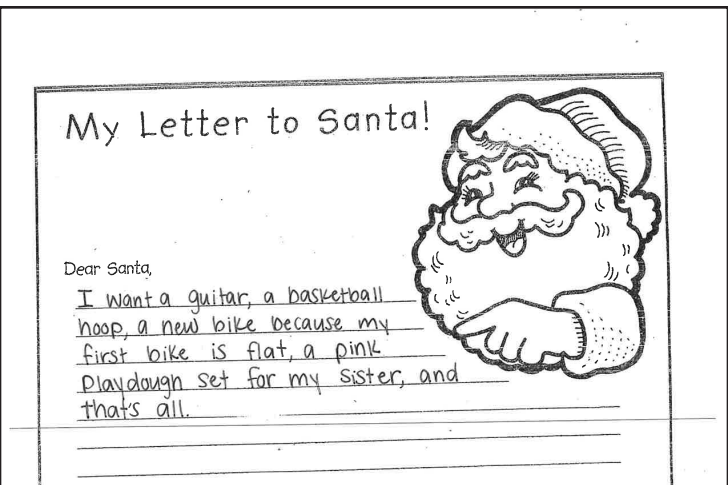 My Letter to Santa!
Dear Santa,
I want a guitar, a basketball
hoop, a new bike because my
first bike is flat, a pink
Playdough set for my sister, and
that's all.